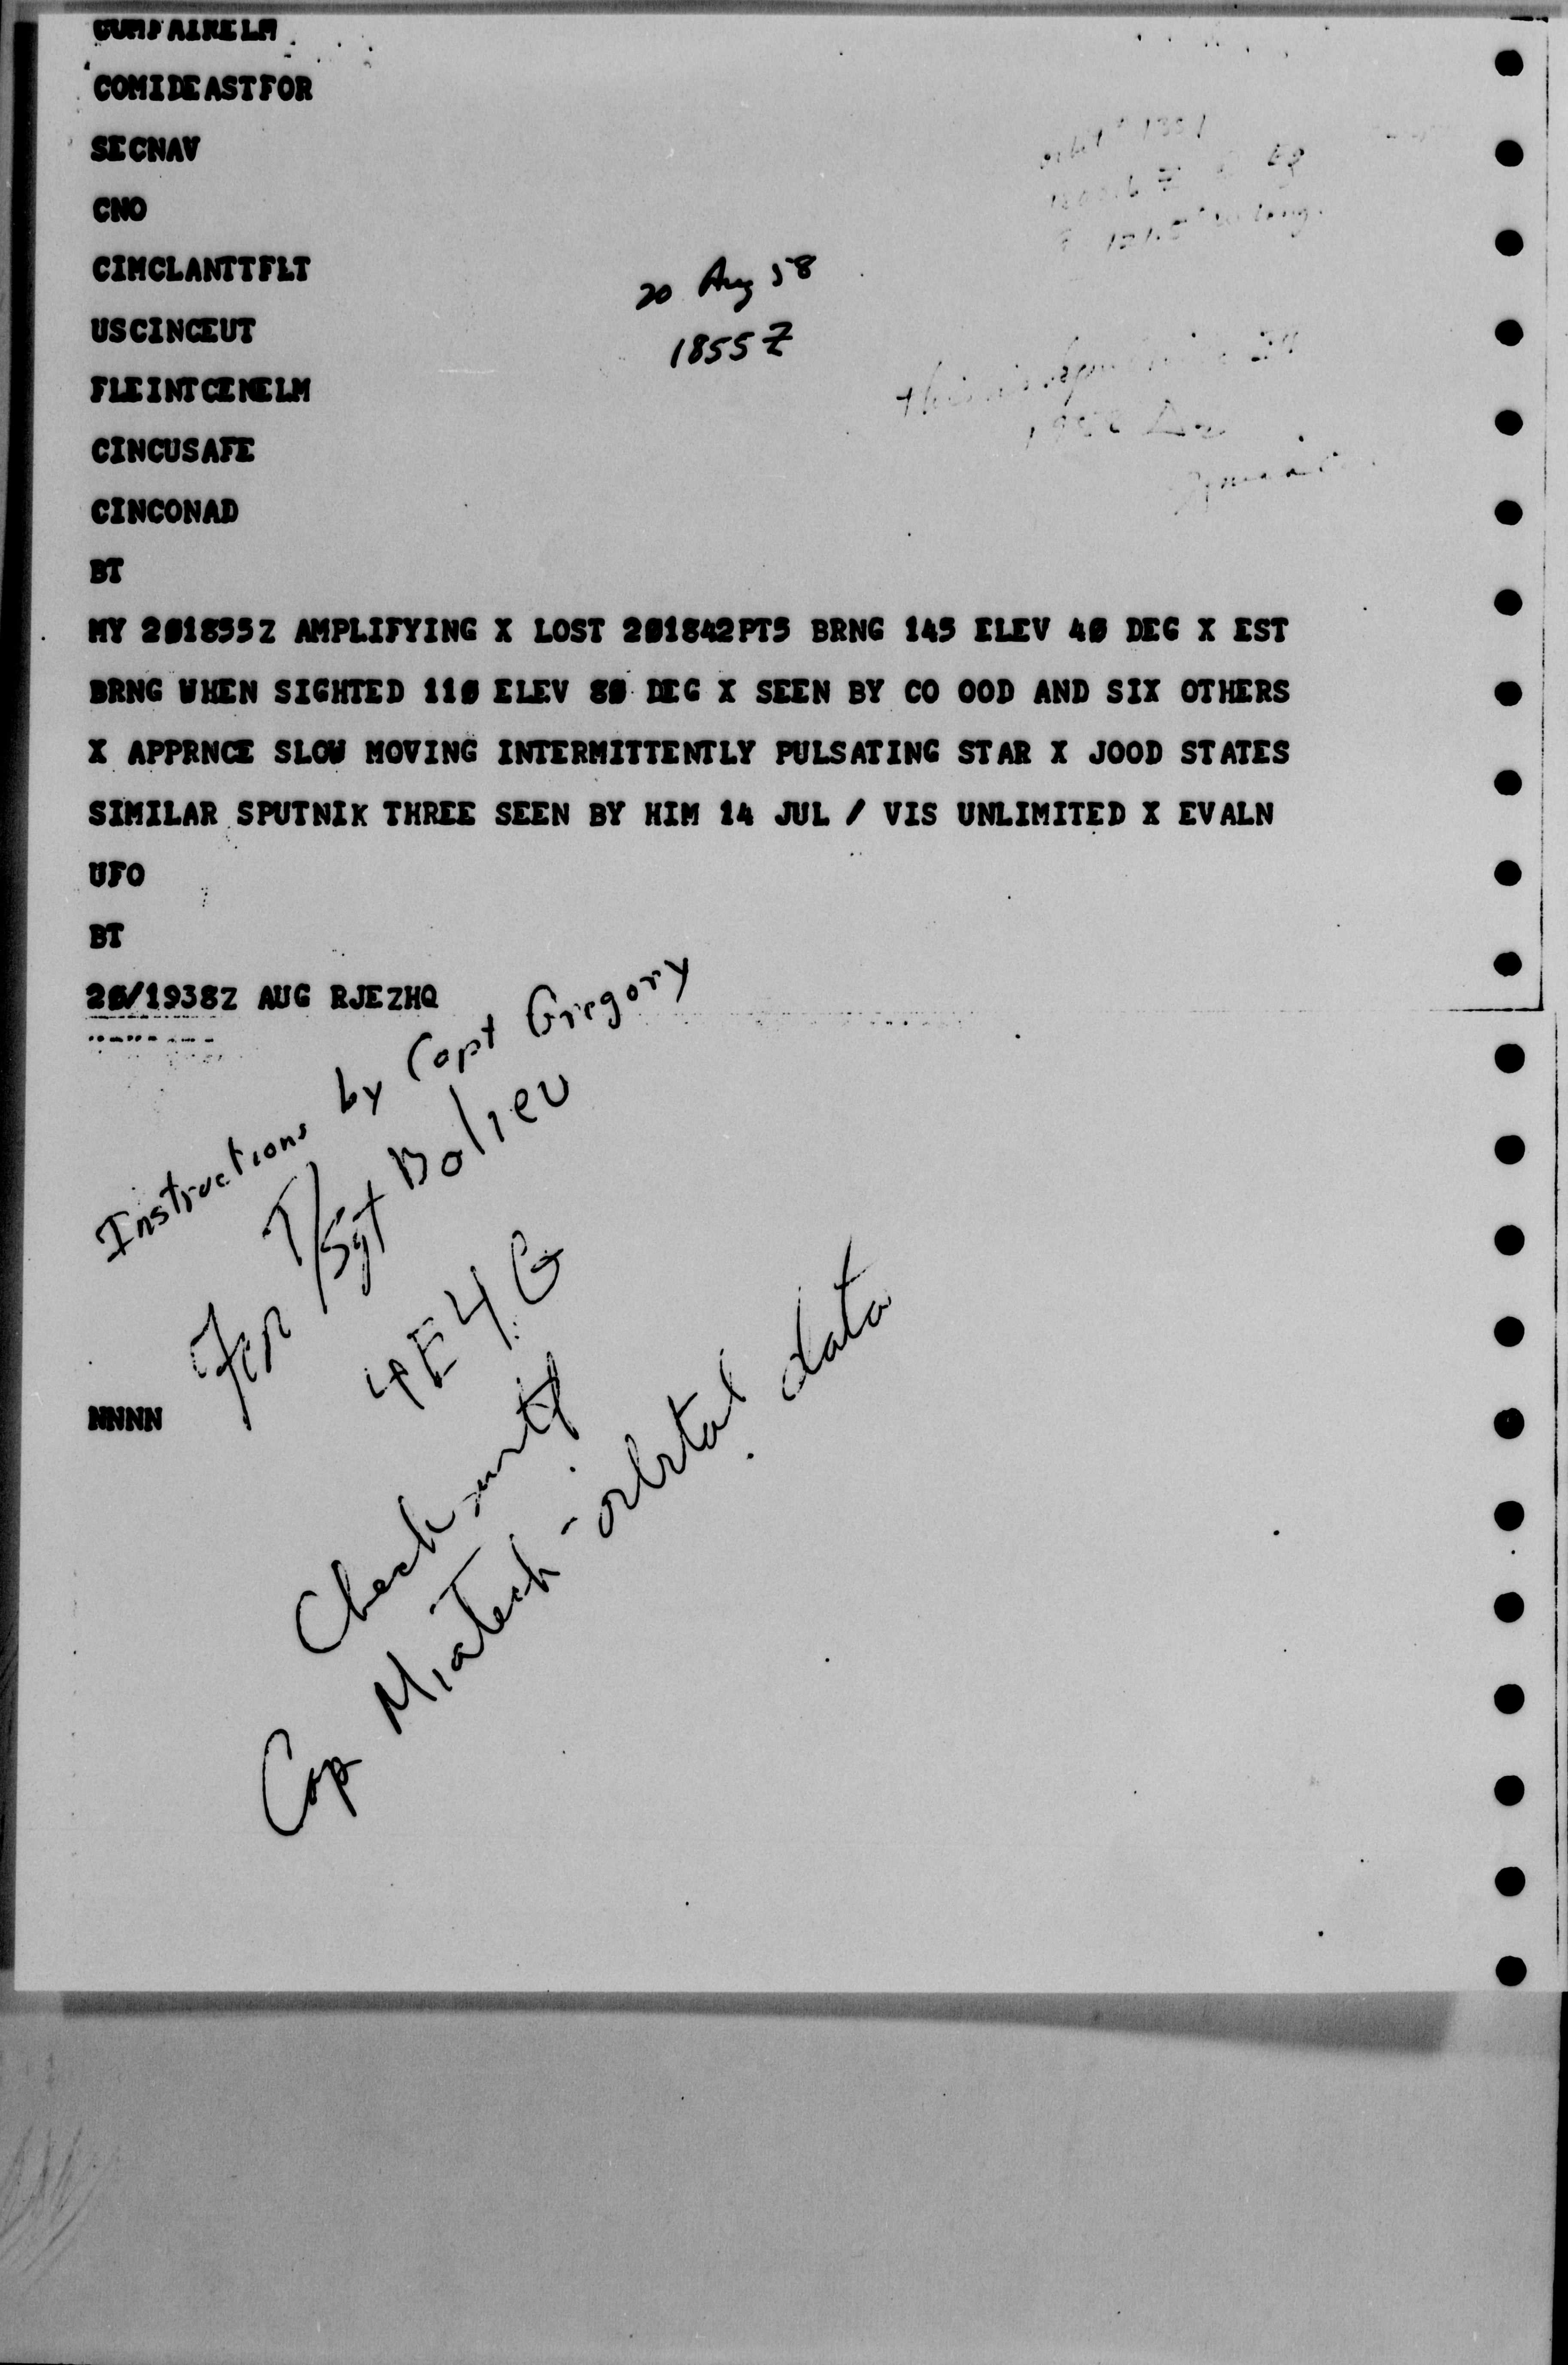 COMFAIRELM
COMIDEASTFOR
SECNAV
CNO
CIMCLANTTFLT
20 Aug 58
USCINCEUT
1855Z
FLEINTCENELM
CINCUSAFE
CINCONAD
BT
MY 201855Z AMPLIFYING X LOST 201842PT5 BRNG 145 ELEV 40 DEG X EST
BRNG WHEN SIGHTED 110 ELEV 80 DEG X SEEN BY CO OOD AND SIX OTHERS
X APPRNCE SLOW MOVING INTERMITTENTLY PULSATING STAR X JOOD STATES
SIMILAR SPUTNIK THREE SEEN BY HIM 14 JUL / VIS UNLIMITED X EVALN
UFO
BT
20/1938Z AUG RJEZHQ
Instructions by Capt Gregory
For T/Sgt Bolieu
4E4G
NNNN
Check with
Cap - orbital data